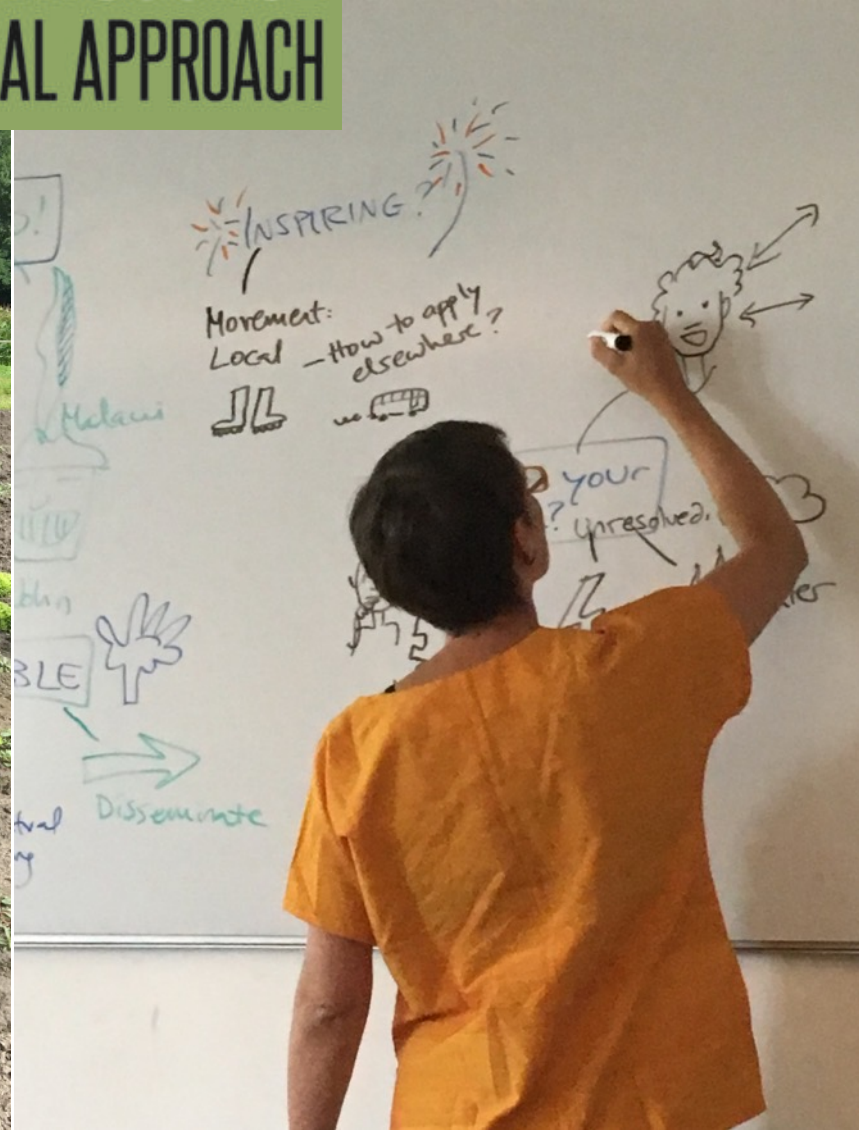 AL APPROACH
INSPIRING?
Movement:
Local – How to apply
elsewhere?
Malawi
YOUR
? unresolved.
BLE
Disseminate